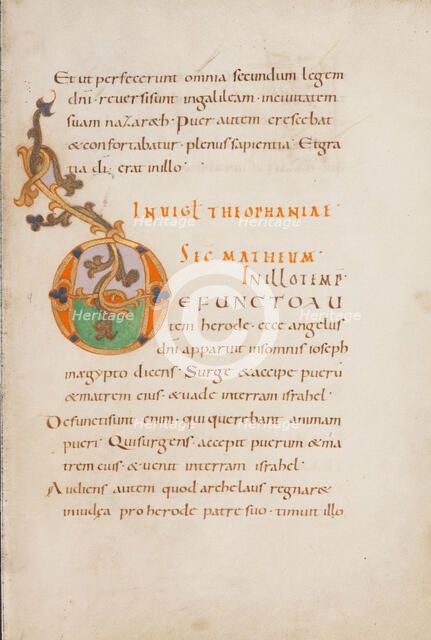 Et ut perfecerunt omnia secundum legem
dñi · reuersi sunt ingalileam · inciuitatem
suam nazareth · Puer autem crescebat
& confortabatur · plenus sapientia · Et gra
tia dī erat inillo ·
INUIGL THEOPHANIAE ·
SEC MATHEUM ·
INILLOTEMP
DEFUNCTOAU
tem herode · ecce angelus
dñi apparuit insomnis ioseph
inægypto dicens · Surge & accipe puerū
& matrem eius · & uade interram israhel ·
Defuncti sunt enim · qui querebant animam
pueri · Qui surgens · accepit puerum & ma
trem eius · & uenit interram israhel ·
Audiens autem quod archelaus regnar&
iniudęa pro herode patre suo · timuit illo
heritage images
Heritage
Heritage
Heritage
Heritage